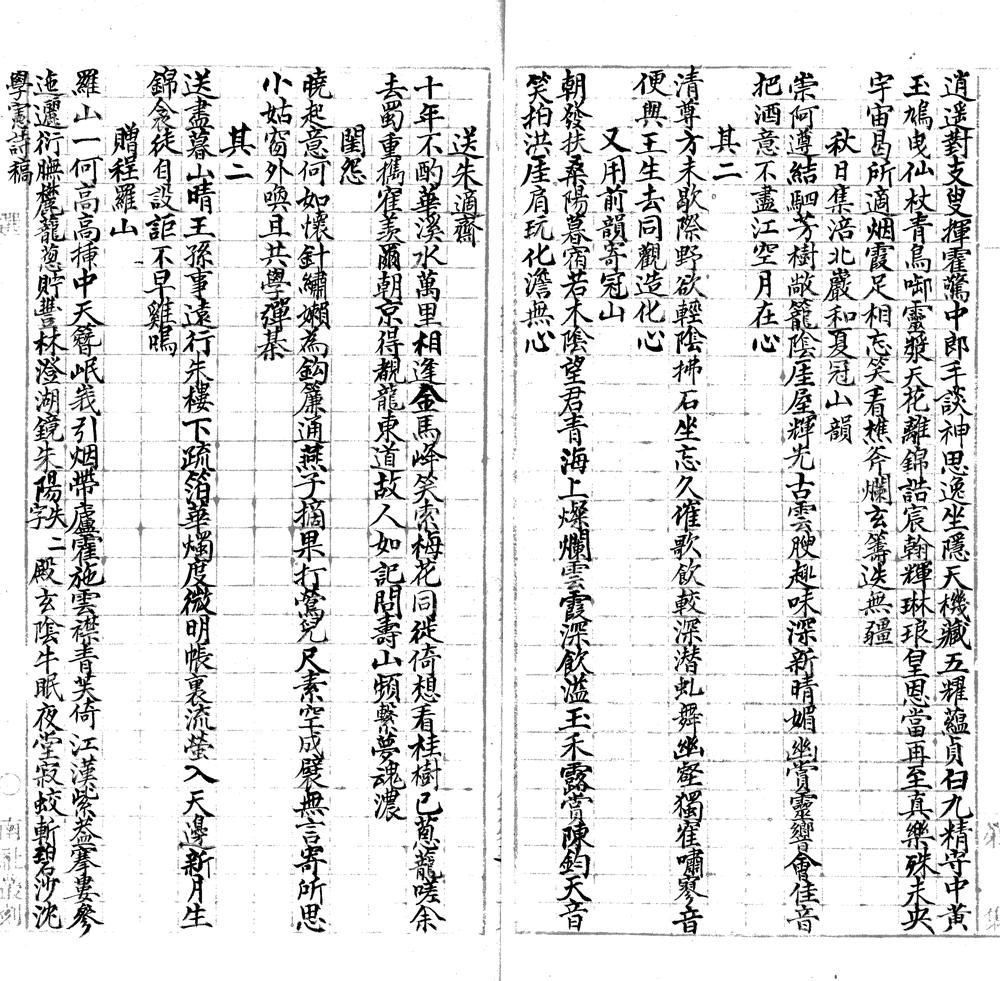 逍遥對支叟揮霍驚中郎手談神思逸坐隱天機藏五耀蘊貞白九精守中黃
玉鳩曳仙杖青鳥啣靈漿天花離錦誥宸翰輝琳琅皇恩當再至真樂殊未央
宇宙曷所適烟霞足相忘笑看樵斧爛玄籌迭無疆
秋日集涪北巖和夏冠山韻
崇何遵結駟芳樹敞籠陰厓屋輝先古雲腴趣味深新晴媚幽賞靈響會佳音
把酒意不盡江空月在心
其二
清尊方未歇際野欲輕陰拂石坐忘久催歌飲較深潜虬舞幽壑獨隺嘯寥音
便與王生去同觀造化心
又用前韻寄冠山
朝發扶桑陽暮宿若木陰望君青海上燦爛雲霞深飲溢玉禾露賞陳鈞天音
笑拍洪厓肩玩化澹無心
送朱適齋
十年不酌華溪水萬里相逢金馬峰笑索梅花同徙倚想看桂樹已蔥蘢嗟余
去蜀重擕隺羨爾朝京得覩龍東道故人如記問壽山頻繫夢魂濃
閨怨
曉起意何如懷針繡嬾為鈎簾通燕子摘果打鶯兒尺素空成襞無言寄所思
小姑窗外喚且共學彈棊
其二
送盡暮山晴王孫事遠行朱樓下疏箔華燭度微明帳裏流螢入天邊新月生
錦衾徒自設詎不早雞鳴
贈程羅山
羅山一何高高揷中天簪岷峩引烟帶廬霍施雲襟青芙倚江漢紫葢搴婁參
迤邐衍膴麓蘢蔥貯豐林澄湖鏡朱陽失二字殿玄陰牛眠夜堂寂蛟斬碧沙沈
學憲詩稿